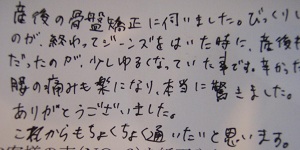 産後の骨盤矯正に伺いました。びっくりし
のが、終わってジーンズをはいた時に、産後も
だったのが、少しゆるくなっていた事です。辛かった
腰の痛みも楽になり、本当に驚きました。
ありがとうございました。
これからもちょくちょく通いたいと思います。